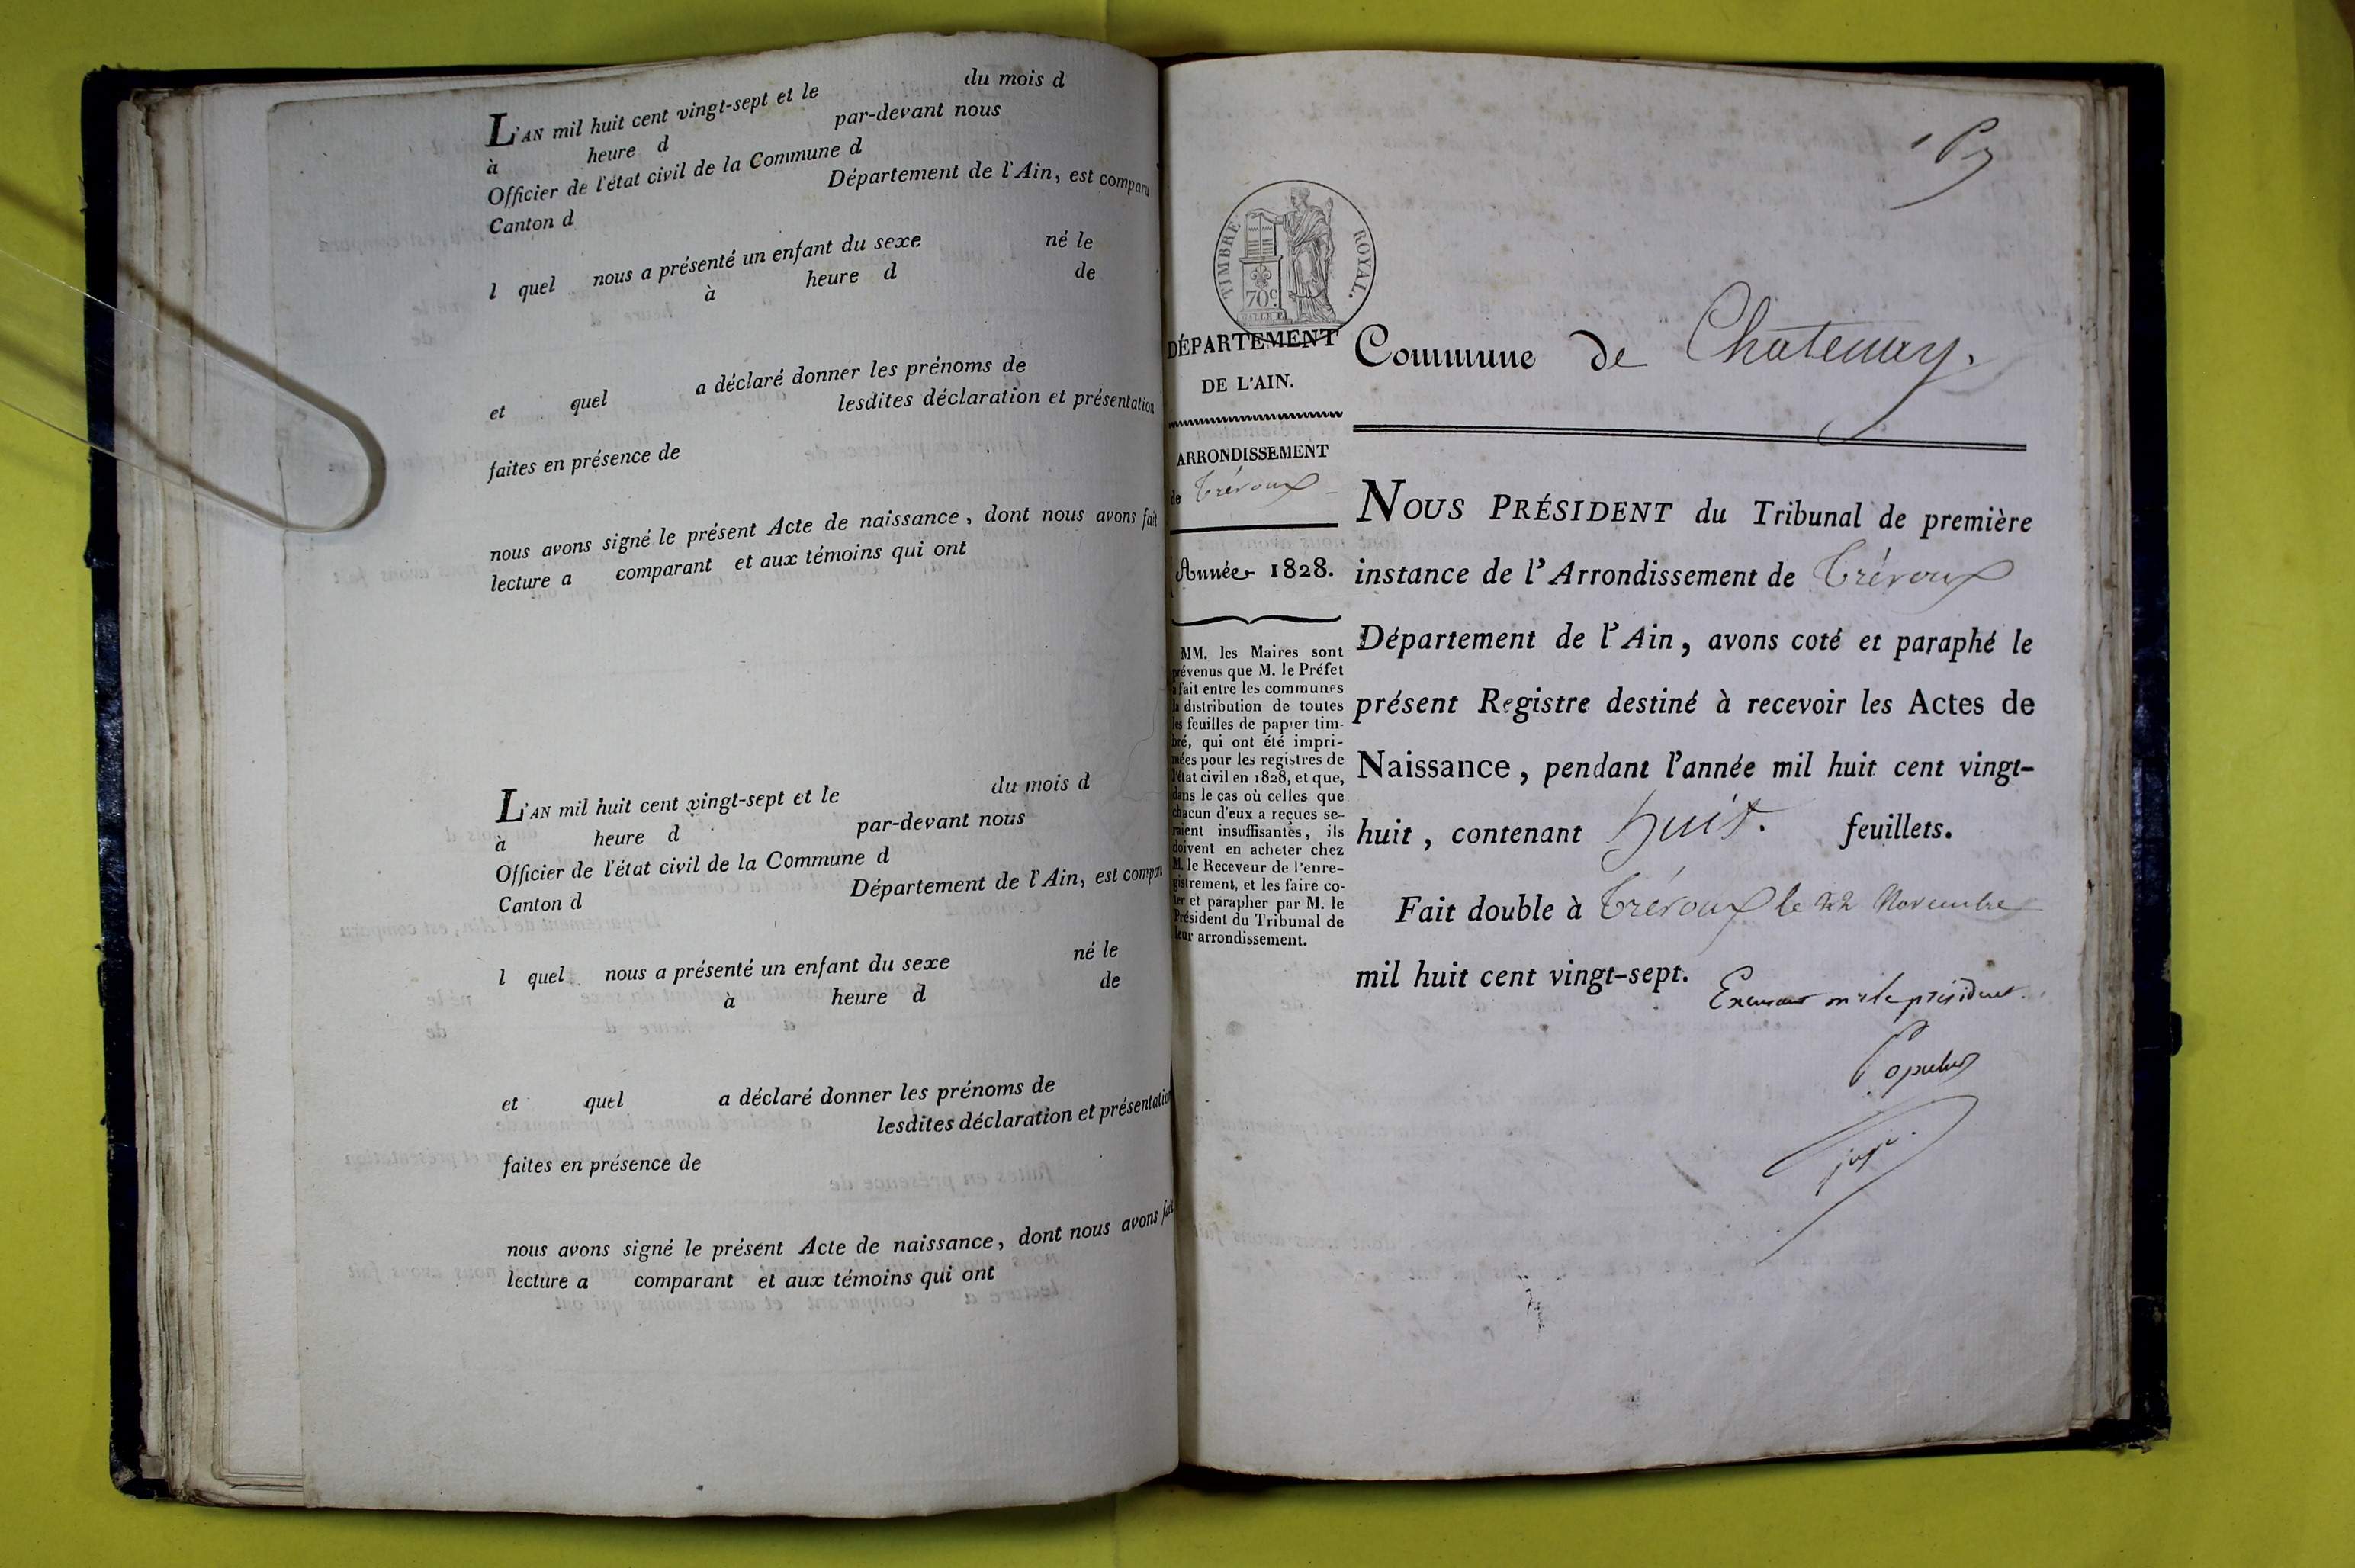 L'AN mil huit cent vingt-sept et le du mois d
à heure d par-devant nous
Officier de l'état civil de la Commune d
Canton d Département de l'Ain, est comparu
l quel nous a présenté un enfant du sexe né le
à heure d de
et quel a déclaré donner les prénoms de
lesdites déclaration et présentation
faites en présence de
nous avons signé le présent Acte de naissance, dont nous avons fait
lecture a comparant et aux témoins qui ont
L'AN mil huit cent vingt-sept et le du mois d
à heure d par-devant nous
Officier de l'état civil de la Commune d
Canton d Département de l'Ain, est comparu
l quel nous a présenté un enfant du sexe né le
à heure d de
et quel a déclaré donner les prénoms de
lesdites déclaration et présentation
faites en présence de
nous avons signé le présent Acte de naissance, dont nous avons fait
lecture a comparant et aux témoins qui ont
TIMBRE ROYAL.
70c.
DÉPARTEMENT
DE L'AIN.
ARRONDISSEMENT
de Trévoux
Année 1828.
MM. les Maires sont
prévenus que M. le Préfet
a fait entre les communes
la distribution de toutes
les feuilles de papier tim-
bré, qui ont été impri-
mées pour les registres de
l'état civil en 1828, et que,
dans le cas où celles que
chacun d'eux a reçues se-
raient insuffisantes, ils
doivent en acheter chez
M. le Receveur de l'enre-
gistrement, et les faire co-
ter et parapher par M. le
Président du Tribunal de
leur arrondissement.
Commune de Chatenay.
NOUS PRÉSIDENT du Tribunal de première
instance de l'Arrondissement de Trévoux
Département de l'Ain, avons coté et paraphé le
présent Registre destiné à recevoir les Actes de
Naissance, pendant l'année mil huit cent vingt-
huit, contenant huit. feuillets.
Fait double à Trévoux le 22 Novembre
mil huit cent vingt-sept.
le président.
Populus
juge